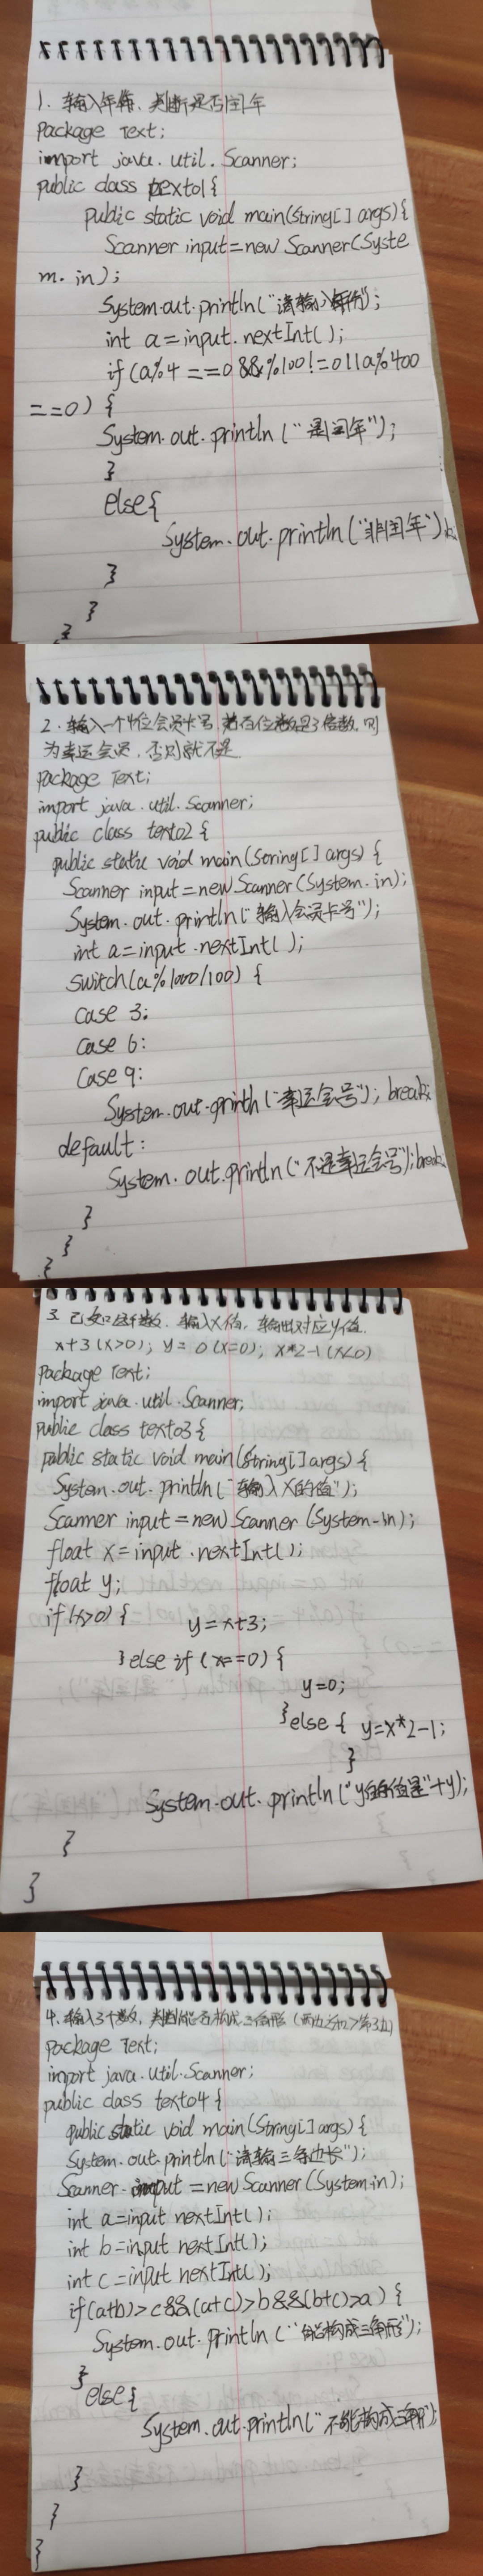 1. 输入年份、判断是否闰年
Package Text;
import java.util.Scanner;
public class texto1{
public static void main(String[] args){
Scanner input=new Scanner(Syste
m.in);
System.out.println("请输入年份");
int a=input.nextInt();
if(a%4==0&&%100!=0||a%400
==0) {
System.out.println("是闰年");
}
else{
System.out.println("非闰年")
}
}
}
2. 输入一个4位会员卡号, 若百位数是3倍数,则
为幸运会员,否则就不是.
package Text;
import java.util.Scanner;
public class texto2 {
public static void main(String[] args) {
Scanner input=new Scanner(System.in);
System.out.println("输入会员卡号");
int a=input.nextInt();
switch(a%1000/100) {
case 3:
case 6:
case 9:
System.out.println("幸运会号"); break;
default:
System.out.println("不是幸运会号");break;
}
}
}
3. 已知这个数,输入X值,输出对应y值.
x+3(x>0); y=0(x=0); x*2-1(x<0)
package Text;
import java.util.Scanner;
public class texto3{
public static void main(String[] args){
System.out.println("输入X的值");
Scanner input=new Scanner(System.in);
float x=input.nextInt();
float y;
if(x>0) { y=x+3;
}else if (x==0) {
y=0;
}else { y=x*2-1;
}
System.out.println("y的值是"+y);
}
}
4. 输入3个数, 判断能否构成三角形(两边之和>第3边)
package Text;
import java.util.Scanner;
public class texto4 {
public static void main(String[] args){
System.out.println("请输三条边长");
Scanner input=new Scanner(System.in);
int a=input nextInt();
int b=input nextInt();
int c=input nextInt();
if(a+b)>c&&(a+c)>b&&(b+c)>a) {
System.out.println("能构成三角形");
}
else{
System.out.println("不能构成三角形");
}
}
}